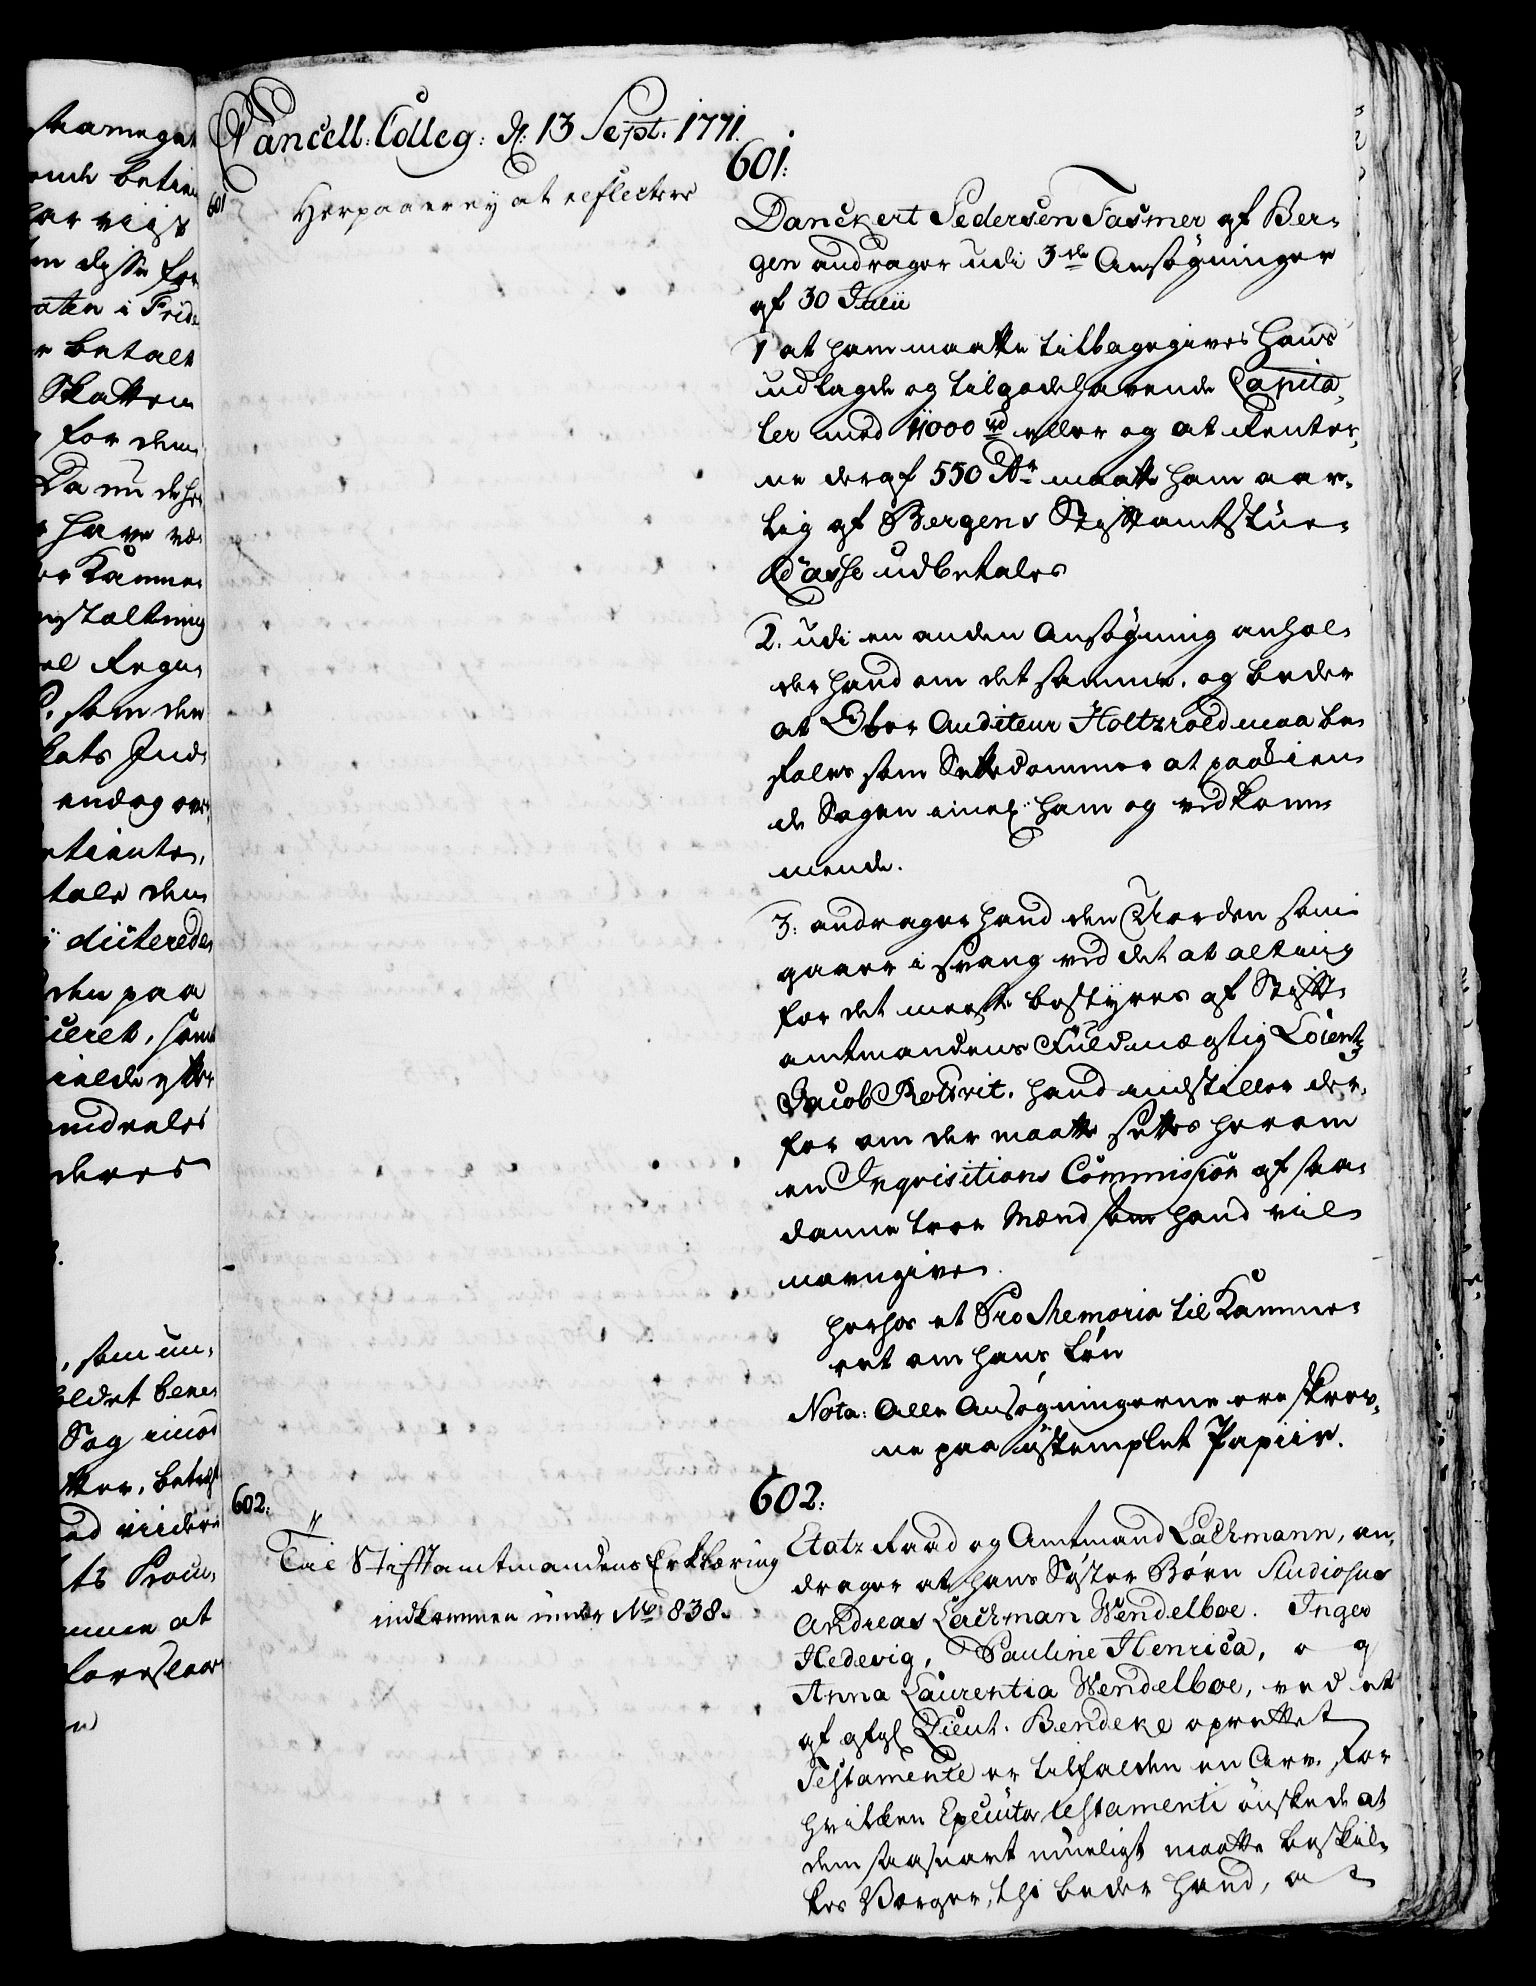 Cancell: Colleg: d: 13 Sept. 1771.
601
Herpaa er ey at reflectere
601:
Danckert Pedersen Fasmer af Ber-
gen andrager udi 3de Ansøgninger
af 30 Julii
1 at ham maatte tilbagegives hans
udlagde og tilgodehavende Capita-
ler med 11000 rd eller og at Renter-
ne deraf 550 Rdr maatte ham aar-
lig af Bergens Stiftamtstue-
Casse udbetales
2. udi en anden Ansøgning anhol-
der hand om det samme, og beder
at Ober Auditeur Holtzrold maa be-
fales som Sættedommer at paakien-
de Sagen imel: ham og vedkom-
mende.
3: andrager hand den Uorden som
gaaer i svang ved det at alting
for det meeste bestyres af Stift-
amtmandens Fuldmægtig Lorentz
Jacob hand indstiller der-
for om der maatte settes herom
en Inqvisitions Commission af saa-
danne troe Mænd som hand vil
navngive.
herhos et Pro Memoria til Kamme-
ret om hans Løn
Nota: Alle Ansøgningerne ere skrev-
ne paa ustemplet Papiir.
602:
Til Stiftamtmandens Erklæring
indkommen under No 838.
602:
Etatz Raad og Amtmand Lachmann, an-
drager at hans Søster Børn Studiosus
Andreas Lachman Wendelboe. Inger
Hedevig, Pauline Henrica, og
Anna Laurentia Wendelboe, ved et
af afgl Lieut. Bendeke oprettet
Testamente er tilfalden en Arv. For
hvilken Executor testamenti ønskede at
dem saasnart mueligt maatte beskik-
kes Værger, thi beder hand, at